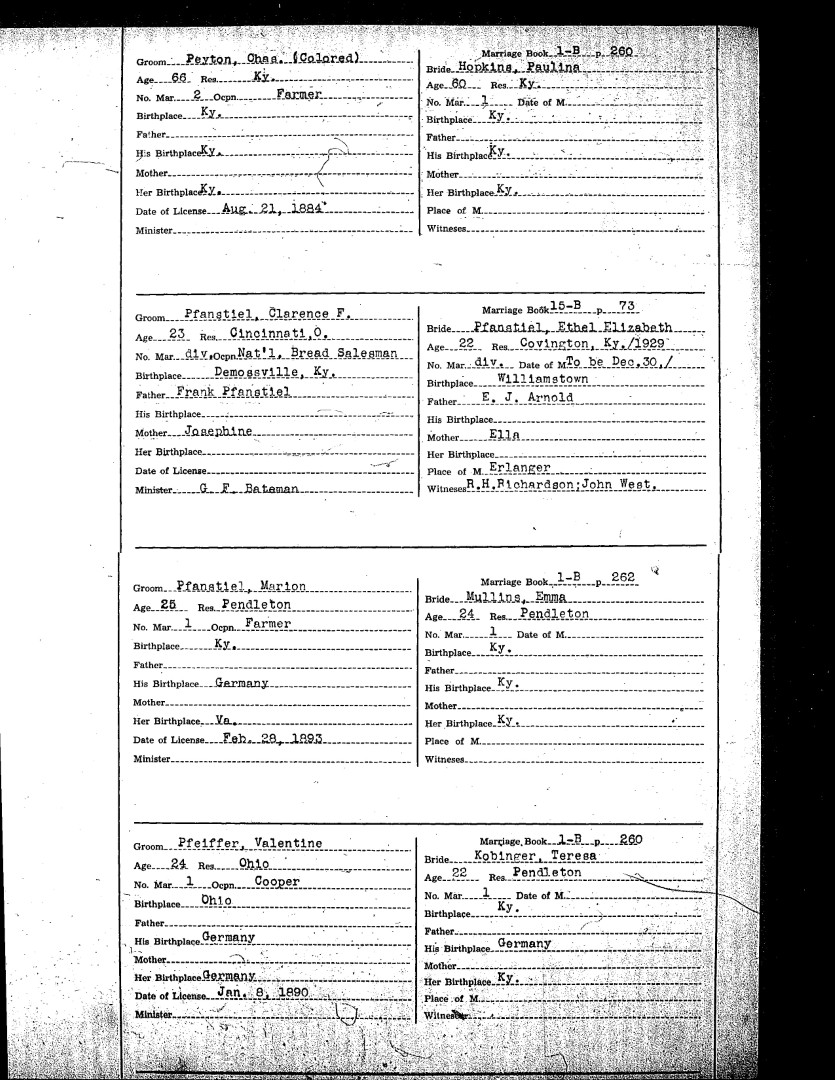 Groom Peyton, Chas. (Colored)
Age 66 Res. Ky.
No. Mar. 2 Ocpn. Farmer
Birthplace Ky.
Father
His Birthplace Ky.
Mother
Her Birthplace Ky.
Date of License Aug. 21, 1884
Minister
Marriage Book 1-B p. 260
Bride Hopkins, Paulina
Age 60 Res. Ky.
No. Mar. 1 Date of M.
Birthplace Ky.
Father
His Birthplace Ky.
Mother
Her Birthplace Ky.
Place of M.
Witneses
Groom Pfanstiel, Clarence F.
Age 23 Res. Cincinnati,O.
No. Mar. div. Ocpn. Nat'l. Bread Salesman
Birthplace Demossville, Ky.
Father Frank Pfanstiel
His Birthplace
Mother Josephine
Her Birthplace
Date of License
Minister G. F. Bateman
Marriage Book 15-B p. 73
Bride Pfanstiel, Ethel Elizabeth
Age 22 Res. Covington, Ky./1929
No. Mar. div. Date of M. To be Dec.30,/
Birthplace Williamstown
Father E. J. Arnold
His Birthplace
Mother Ella
Her Birthplace
Place of M. Erlanger
Witneses R.H.Richardson;John West.
Groom Pfanstiel, Marion
Age 25 Res. Pendleton
No. Mar. 1 Ocpn. Farmer
Birthplace Ky.
Father
His Birthplace Germany
Mother
Her Birthplace Va.
Date of License Feb. 28, 1893
Minister
Marriage Book 1-B p. 262
Bride Mullins, Emma
Age 24 Res. Pendleton
No. Mar. 1 Date of M.
Birthplace Ky.
Father
His Birthplace Ky.
Mother
Her Birthplace Ky.
Place of M.
Witneses
Groom Pfeiffer, Valentine
Age 24 Res. Ohio
No. Mar. 1 Ocpn. Cooper
Birthplace Ohio
Father
His Birthplace Germany
Mother
Her Birthplace Germany
Date of License Jan. 8, 1890
Minister
Marriage Book 1-B p. 260
Bride Kobinger, Teresa
Age 22 Res. Pendleton
No. Mar. 1 Date of M.
Birthplace Ky.
Father
His Birthplace Germany
Mother
Her Birthplace Ky.
Place of M.
Witneses